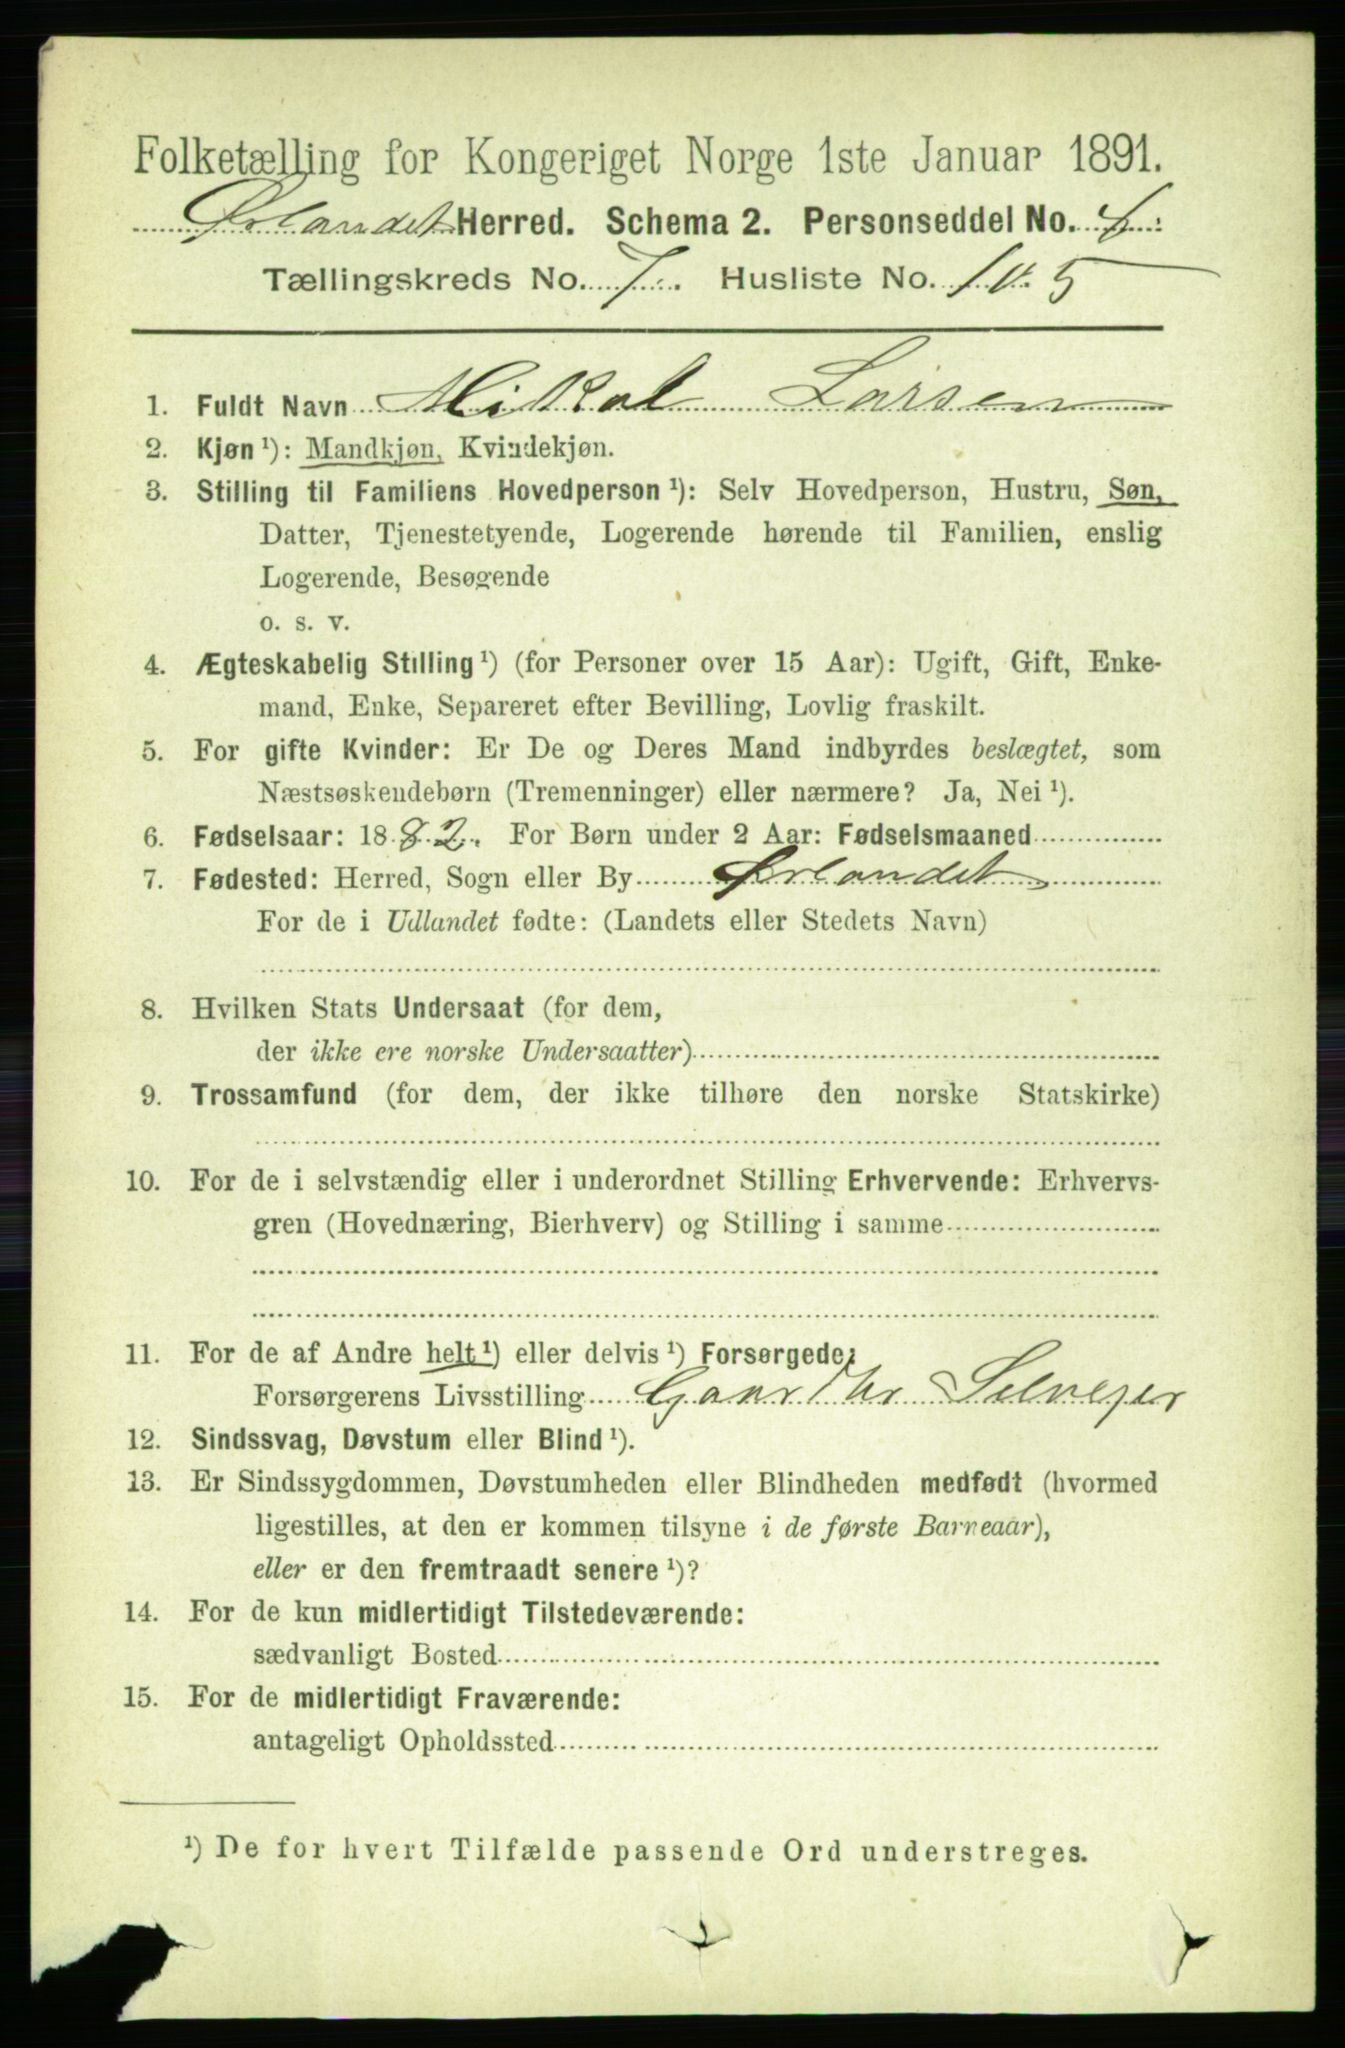 Folketælling for Kongeriget Norge 1ste Januar 1891.
Ørlandet Herred. Schema 2. Personseddel No. 6
Tællingskreds No. 7. Husliste No. 105
1. Fuldt Navn Mikal Larsen
2. Kjøn ¹): Mandkjøn, Kvindekjøn.
3. Stilling til Familiens Hovedperson ¹): Selv Hovedperson, Hustru, Søn,
Datter, Tjenestetyende, Logerende hørende til Familien, enslig
Logerende, Besøgende
o. s. v.
4. Ægteskabelig Stilling ¹) (for Personer over 15 Aar): Ugift, Gift, Enke-
mand, Enke, Separeret efter Bevilling, Lovlig fraskilt.
5. For gifte Kvinder: Er De og Deres Mand indbyrdes beslægtet, som
Næstsøskendebørn (Tremenninger) eller nærmere? Ja, Nei ¹).
6. Fødselsaar: 1882. For Børn under 2 Aar: Fødselsmaaned
7. Fødested: Herred, Sogn eller By Ørlandet
For de i Udlandet fødte: (Landets eller Stedets Navn)
8. Hvilken Stats Undersaat (for dem,
der ikke ere norske Undersaatter)
9. Trossamfund (for dem, der ikke tilhøre den norske Statskirke)
10. For de i selvstændig eller i underordnet Stilling Erhvervende: Erhvervs-
gren (Hovednæring, Bierhverv) og Stilling i samme
11. For de af Andre helt ¹) eller delvis ¹) Forsørgede:
Forsørgerens Livsstilling Gaardbr Selveger
12. Sindssvag, Døvstum eller Blind ¹).
13. Er Sindssygdommen, Døvstumheden eller Blindheden medfødt (hvormed
ligestilles, at den er kommen tilsyne i de første Barneaar),
eller er den fremtraadt senere ¹)?
14. For de kun midlertidigt Tilstedeværende:
sædvanligt Bosted
15. For de midlertidigt Fraværende:
antageligt Opholdssted
¹) De for hvert Tilfælde passende Ord understreges.